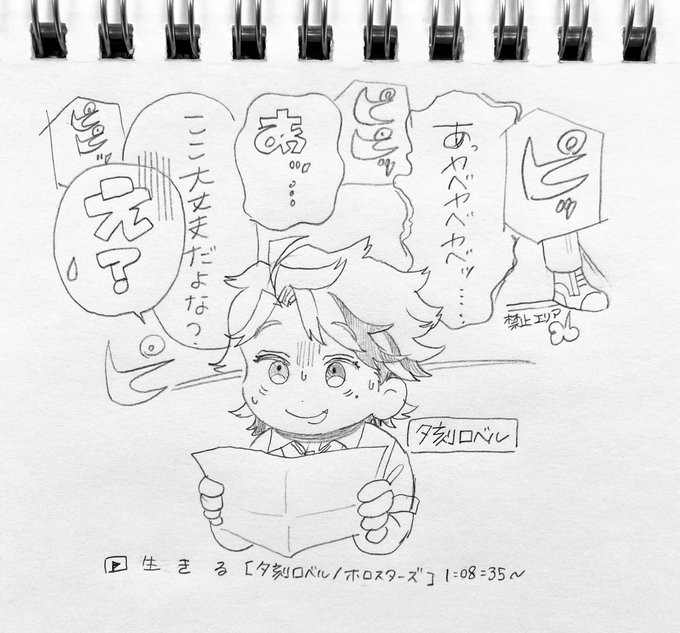 ピッ
あっやべやべやべッ……
ピピッ
あっ……
ここ大丈夫だよな？
ピピッ
え？
ピ
禁止エリア
夕刻ロベル
生きる[夕刻ロベル/ホロスターズ] 1:08:35~